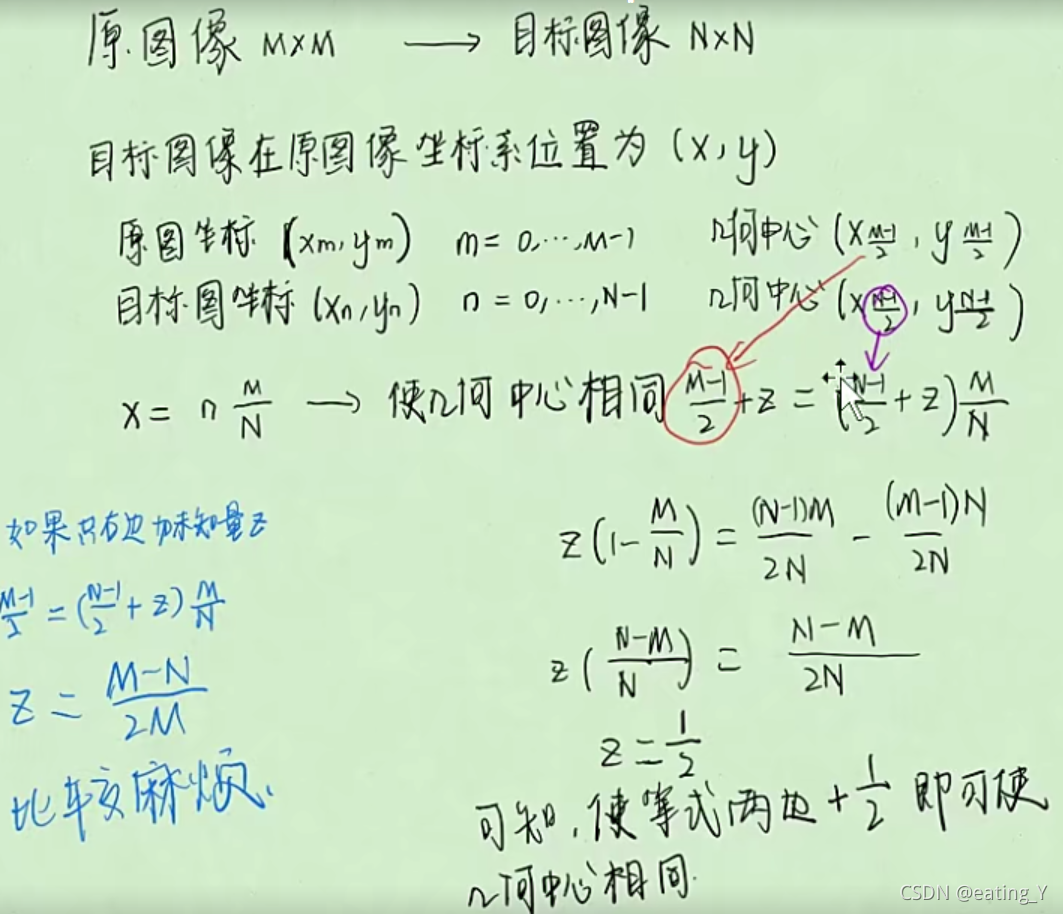 原图像 M×M → 目标图像 N×N
目标图像在原图像坐标系位置为 (x, y)
原图坐标 (xm, ym) m = 0,…,M-1 几何中心 (x_{\frac{M-1}{2}}, y_{\frac{M-1}{2}})
目标图坐标 (xn, yn) n = 0,…,N-1 几何中心 (x_{\frac{N-1}{2}}, y_{\frac{N-1}{2}})
x = n \frac{M}{N} → 使几何中心相同 \frac{M-1}{2} + z = (\frac{N-1}{2} + z) \frac{M}{N}
z(1 - \frac{M}{N}) = \frac{(N-1)M}{2N} - \frac{(M-1)N}{2N}
z(\frac{N-M}{N}) = \frac{N-M}{2N}
z = \frac{1}{2}
可知,使等式两边 + \frac{1}{2} 即可使
几何中心相同.
如果只右边加未知量z
\frac{M-1}{2} = (\frac{N-1}{2} + z) \frac{M}{N}
z = \frac{M-N}{2M}
比较麻烦.
CSDN @eating_Y